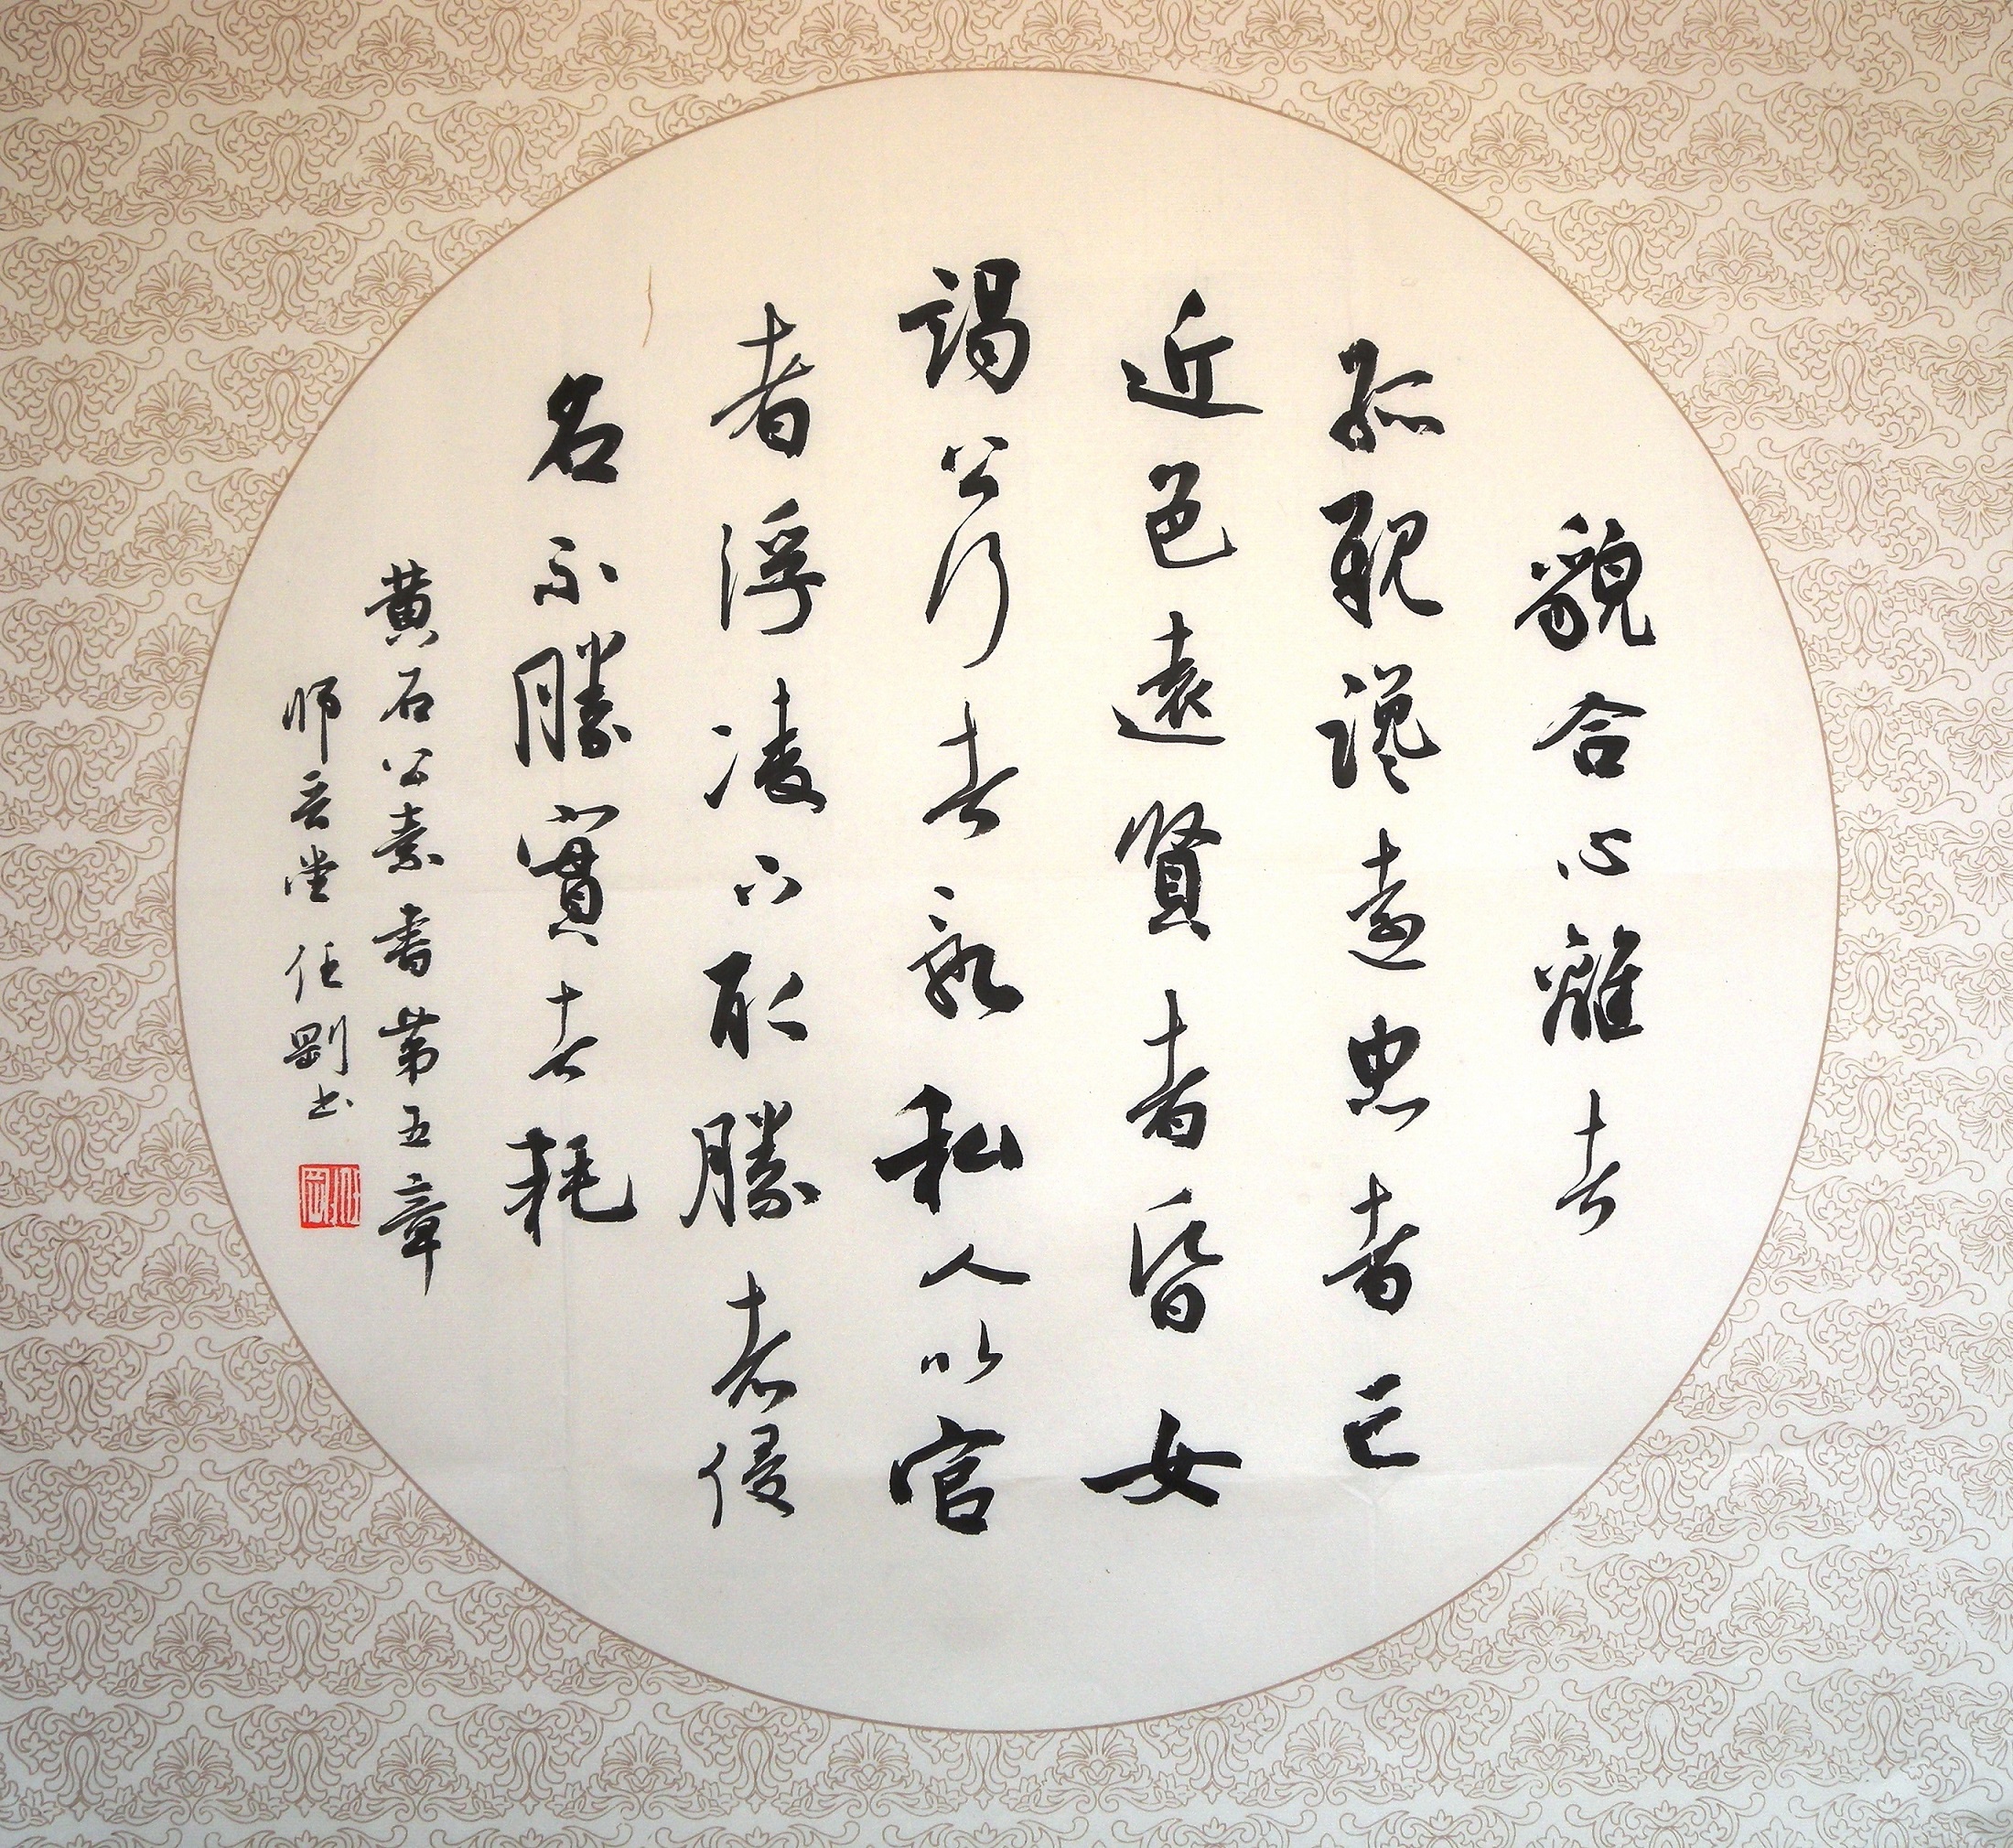 貌合心離者
孤親谗遠忠者亡
近色遠賢者昏女
謁公行者亂私人以官
者浮凌下取勝者侵
名不勝實者耗
黄石公素書第五章
師堂任剛书